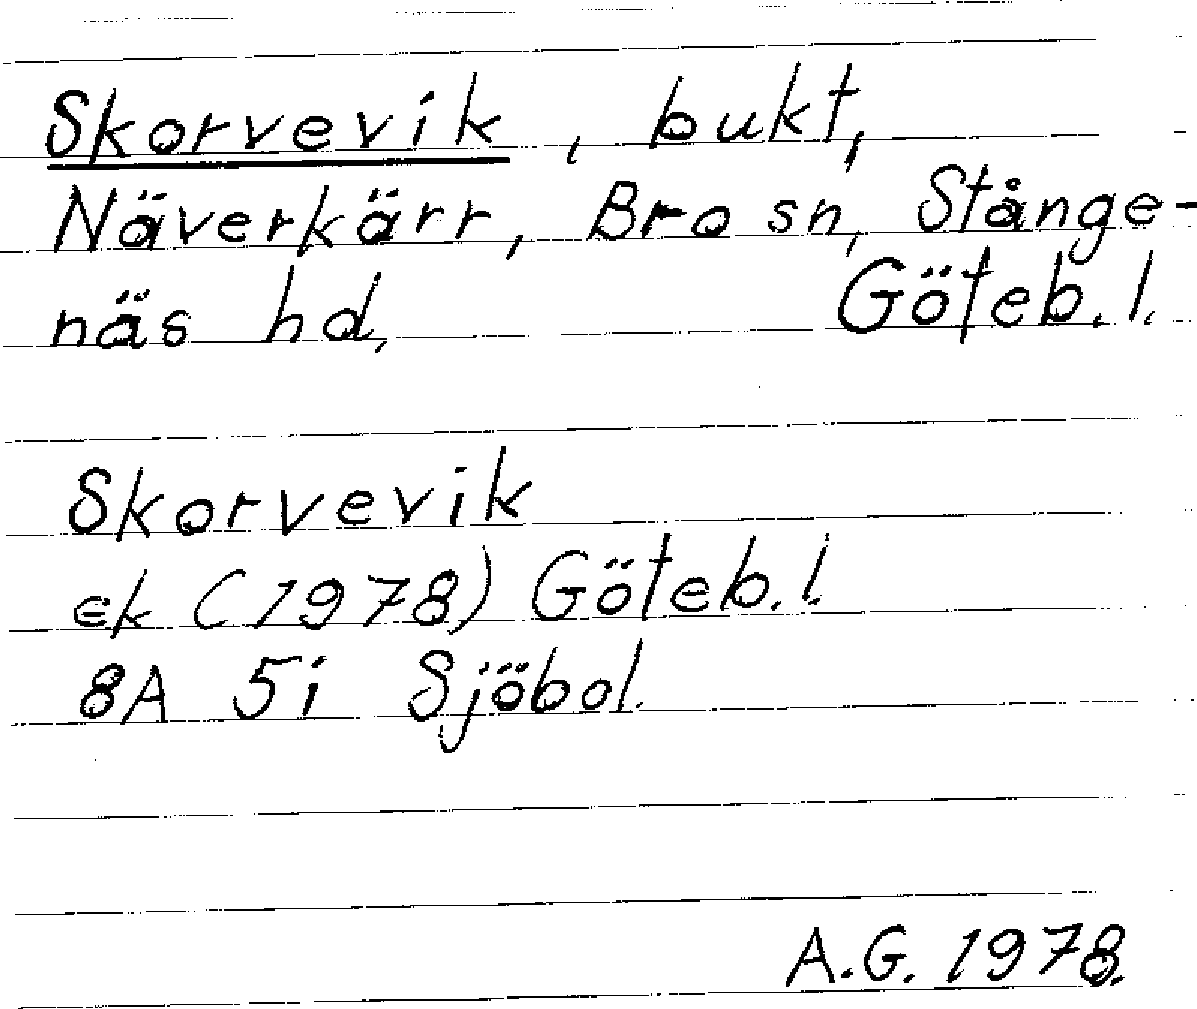 Skorvevik, bukt,
Näverkärr, Bro sn, Stånge-
näs hd, Göteb. l.
Skorvevik
ek (1978) Göteb. l.
8A 5i Sjöbol.
A.G. 1978.